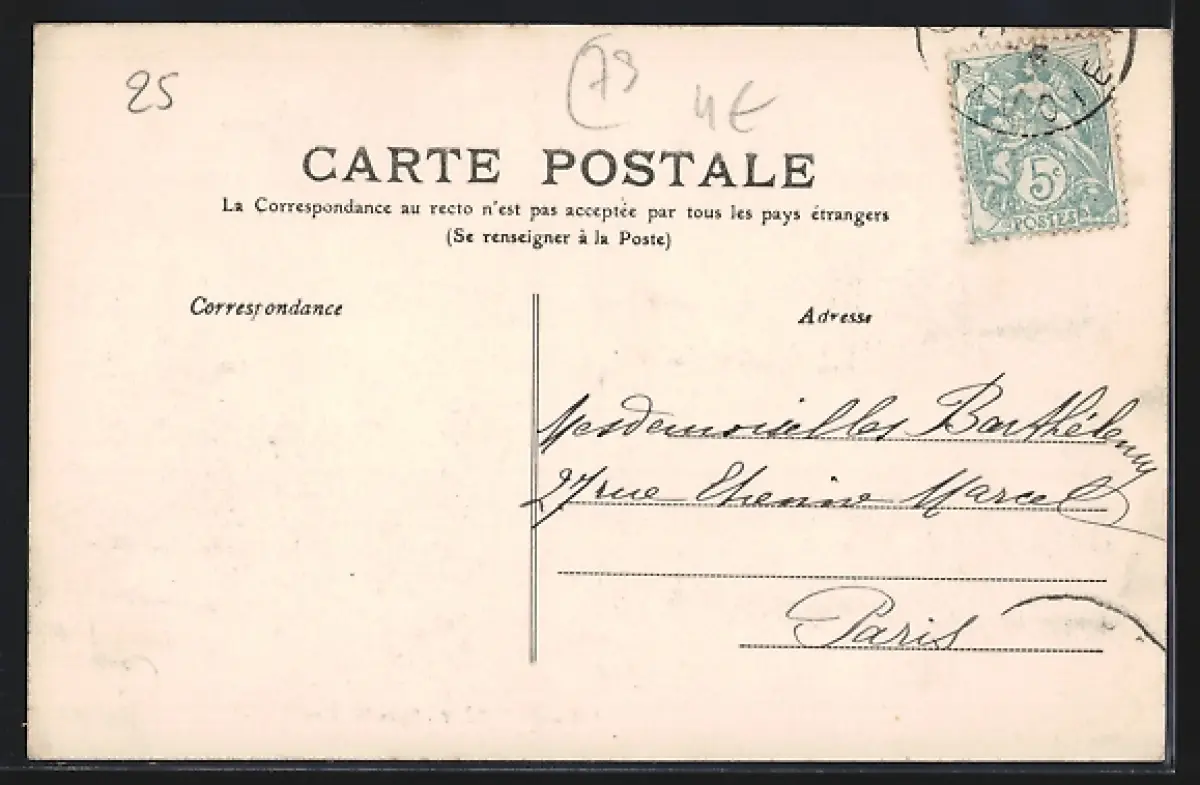 25
73
4€
CARTE POSTALE
La Correspondance au recto n'est pas acceptée par tous les pays étrangers
(Se renseigner à la Poste)
5c
POSTES
Correspondance
Adresse
Mesdemoiselles Barthélemy
27 rue Etienne Marcel
Paris